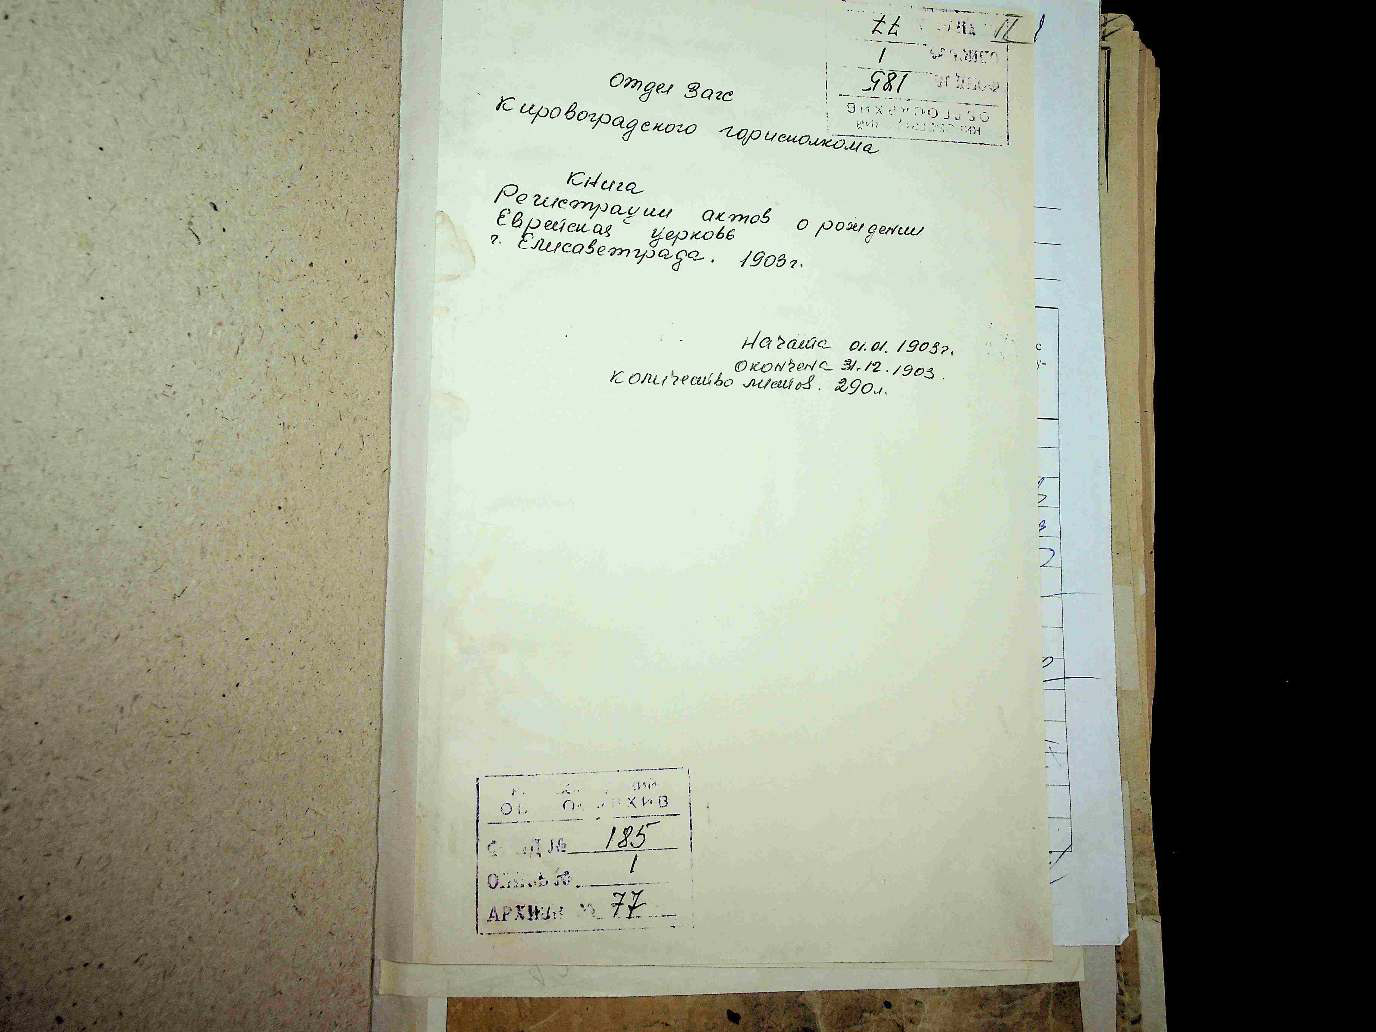 Отдел Загс
Кировоградского горисполкома
Книга
Регистрации актов о рождении
Еврейская церковь
г. Елисаветграда. 1903г.
Начата 01.01.1903г.
Окончена 31.12.1903.
Количество листов. 290л.
185
1
АРХИВ
77